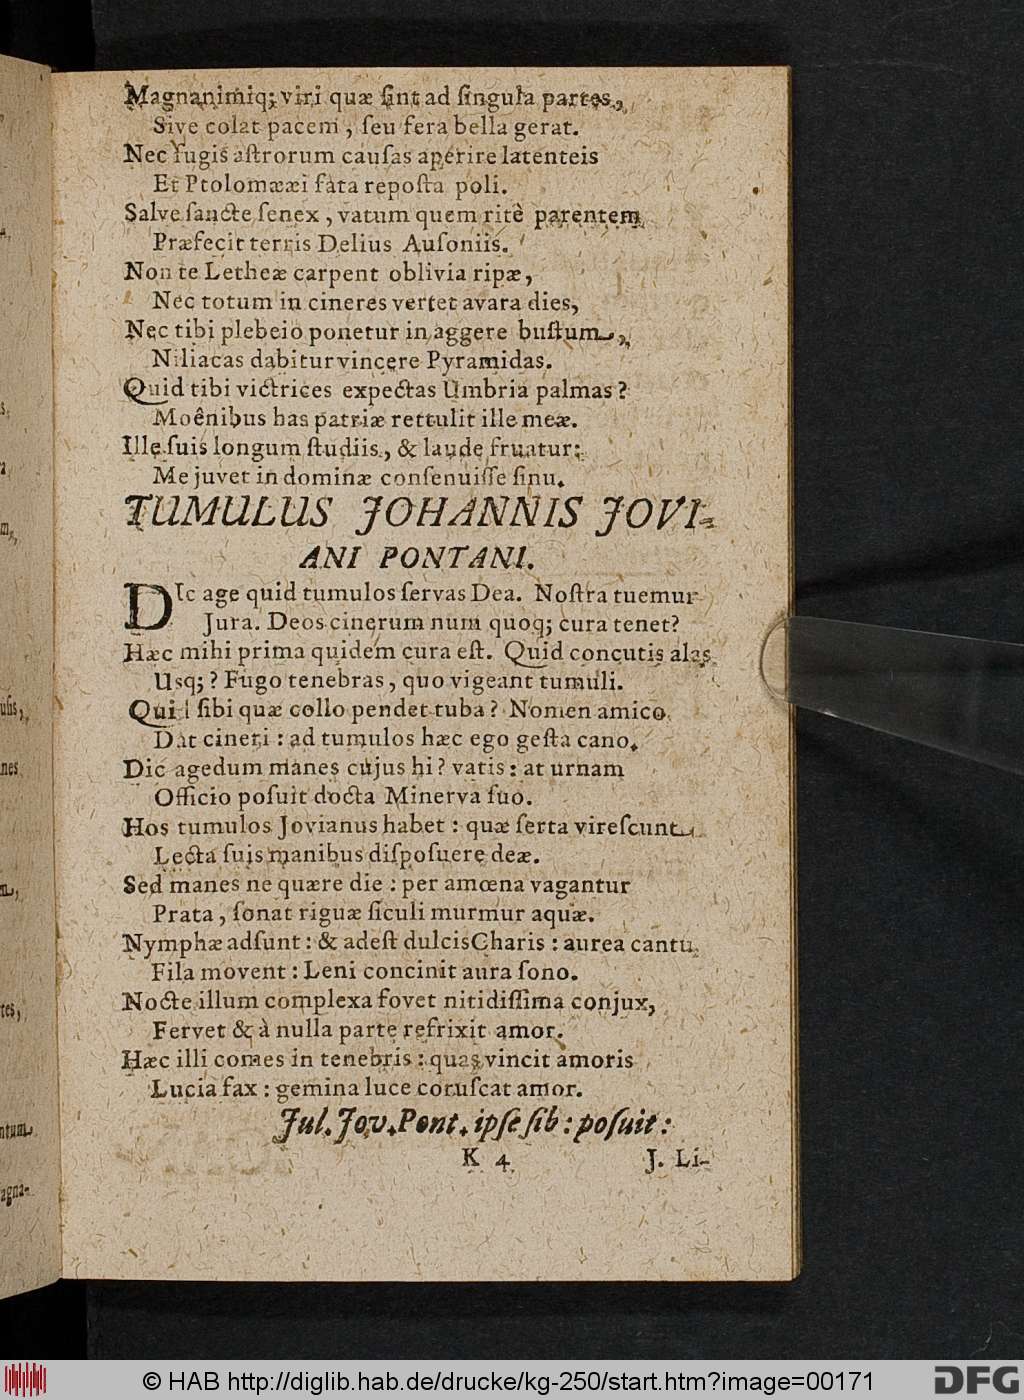 Magnanimiq; viri quæ ſint ad ſingula partes,
Sive colat pacem, ſeu fera bella gerat.
Nec fugis aſtrorum cauſas aperire latenteis
Et Ptolomææi fata repoſta poli.
Salve ſancte ſenex, vatum quem ritè parentem
Præfecit terris Delius Auſoniis.
Non te Letheæ carpent oblivia ripæ,
Nec totum in cineres vertet avara dies,
Nec tibi plebeio ponetur in aggere buſtum,
Niliacas dabitur vincere Pyramidas.
Quid tibi victrices expectas Umbria palmas?
Moênibus has patriæ rettulit ille meæ.
Ille ſuis longum ſtudiis, & laude fruatur:
Me juvet in dominæ conſenuiſſe ſinu.
TUMULUS JOHANNIS JOVI-
ANI PONTANI.
DIc age quid tumulos ſervas Dea. Noſtra tuemur
Jura. Deos cinerum num quoq; cura tenet?
Hæc mihi prima quidem cura eſt. Quid concutis alas
Usq;? Fugo tenebras, quo vigeant tumuli.
Quid ſibi quæ collo pendet tuba? Nomen amico
Dat cineri: ad tumulos hæc ego geſta cano.
Dic agedum manes cujus hi? vatis: at urnam
Officio poſuit docta Minerva ſuo.
Hos tumulos Jovianus habet: quæ ſerta vireſcunt
Lecta ſuis manibus diſpoſuere deæ.
Sed manes ne quære die: per amœna vagantur
Prata, ſonat riguæ ſiculi murmur aquæ.
Nymphæ adſunt: & adeſt dulcis Charis: aurea cantu
Fila movent: Leni concinit aura ſono.
Nocte illum complexa fovet nitidiſſima conjux,
Fervet & à nulla parte refrixit amor.
Hæc illi comes in tenebris: quas vincit amoris
Lucia fax: gemina luce coruſcat amor.
Jul. Jov. Pont. ipſe ſib: poſuit:
K 4
J. Li-
© HAB http://diglib.hab.de/drucke/kg-250/start.htm?image=00171
DFG